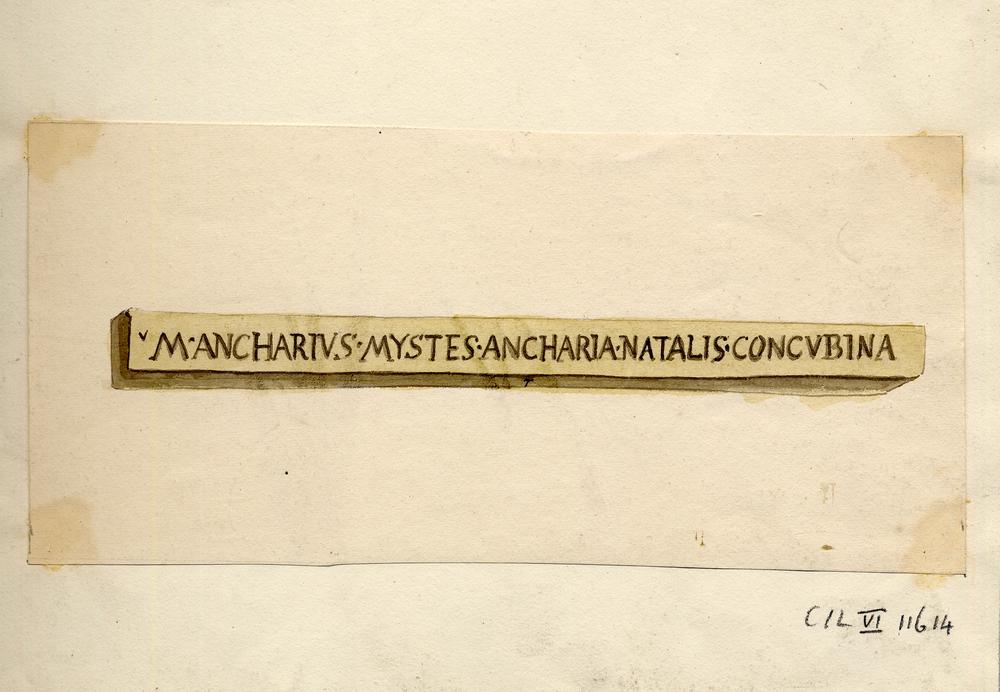 V M·ANCHARIVS·MYSTES·ANCHARIA·NATALIS·CONCVBINA
CIL VI 11614